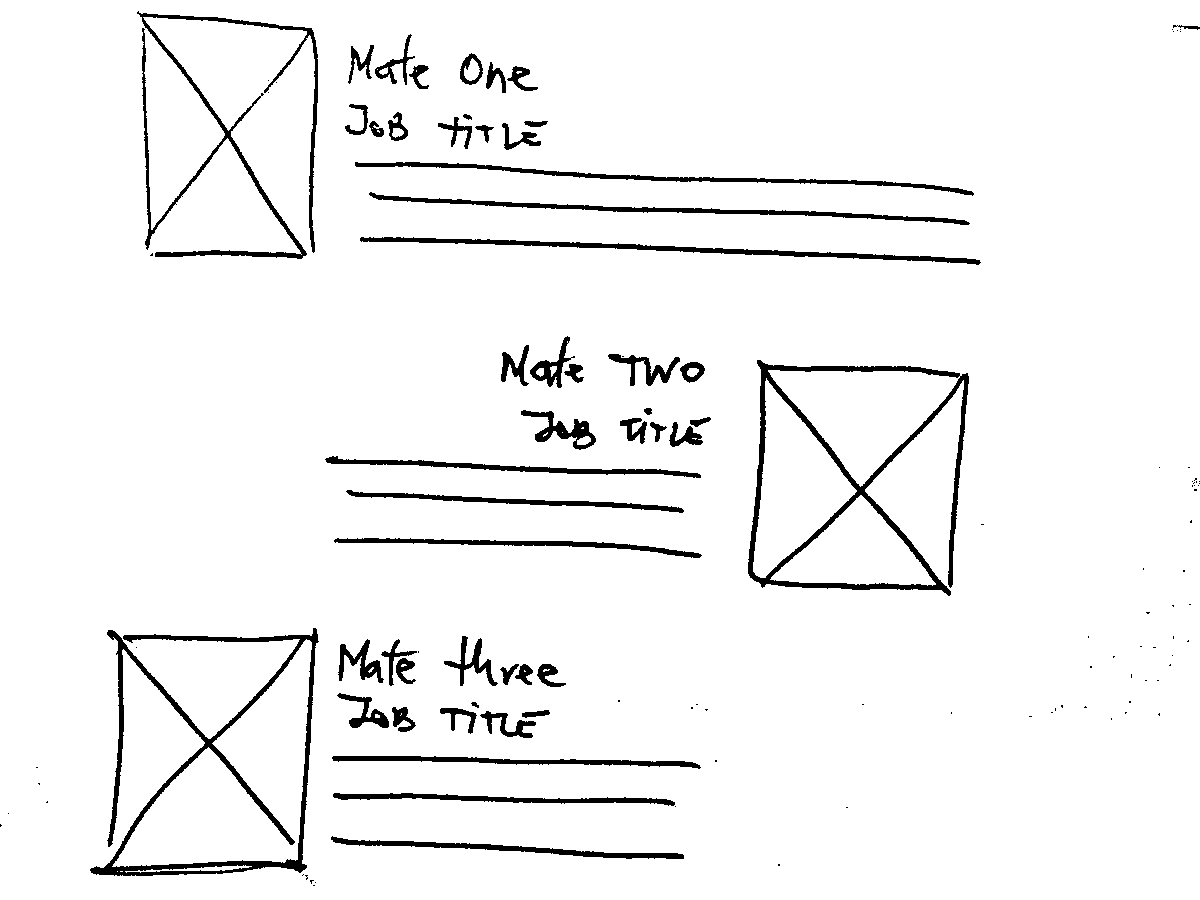 Mate One
JOB TiTLE
Mate TWO
JOB TiTLE
Mate three
JOB TiTLE